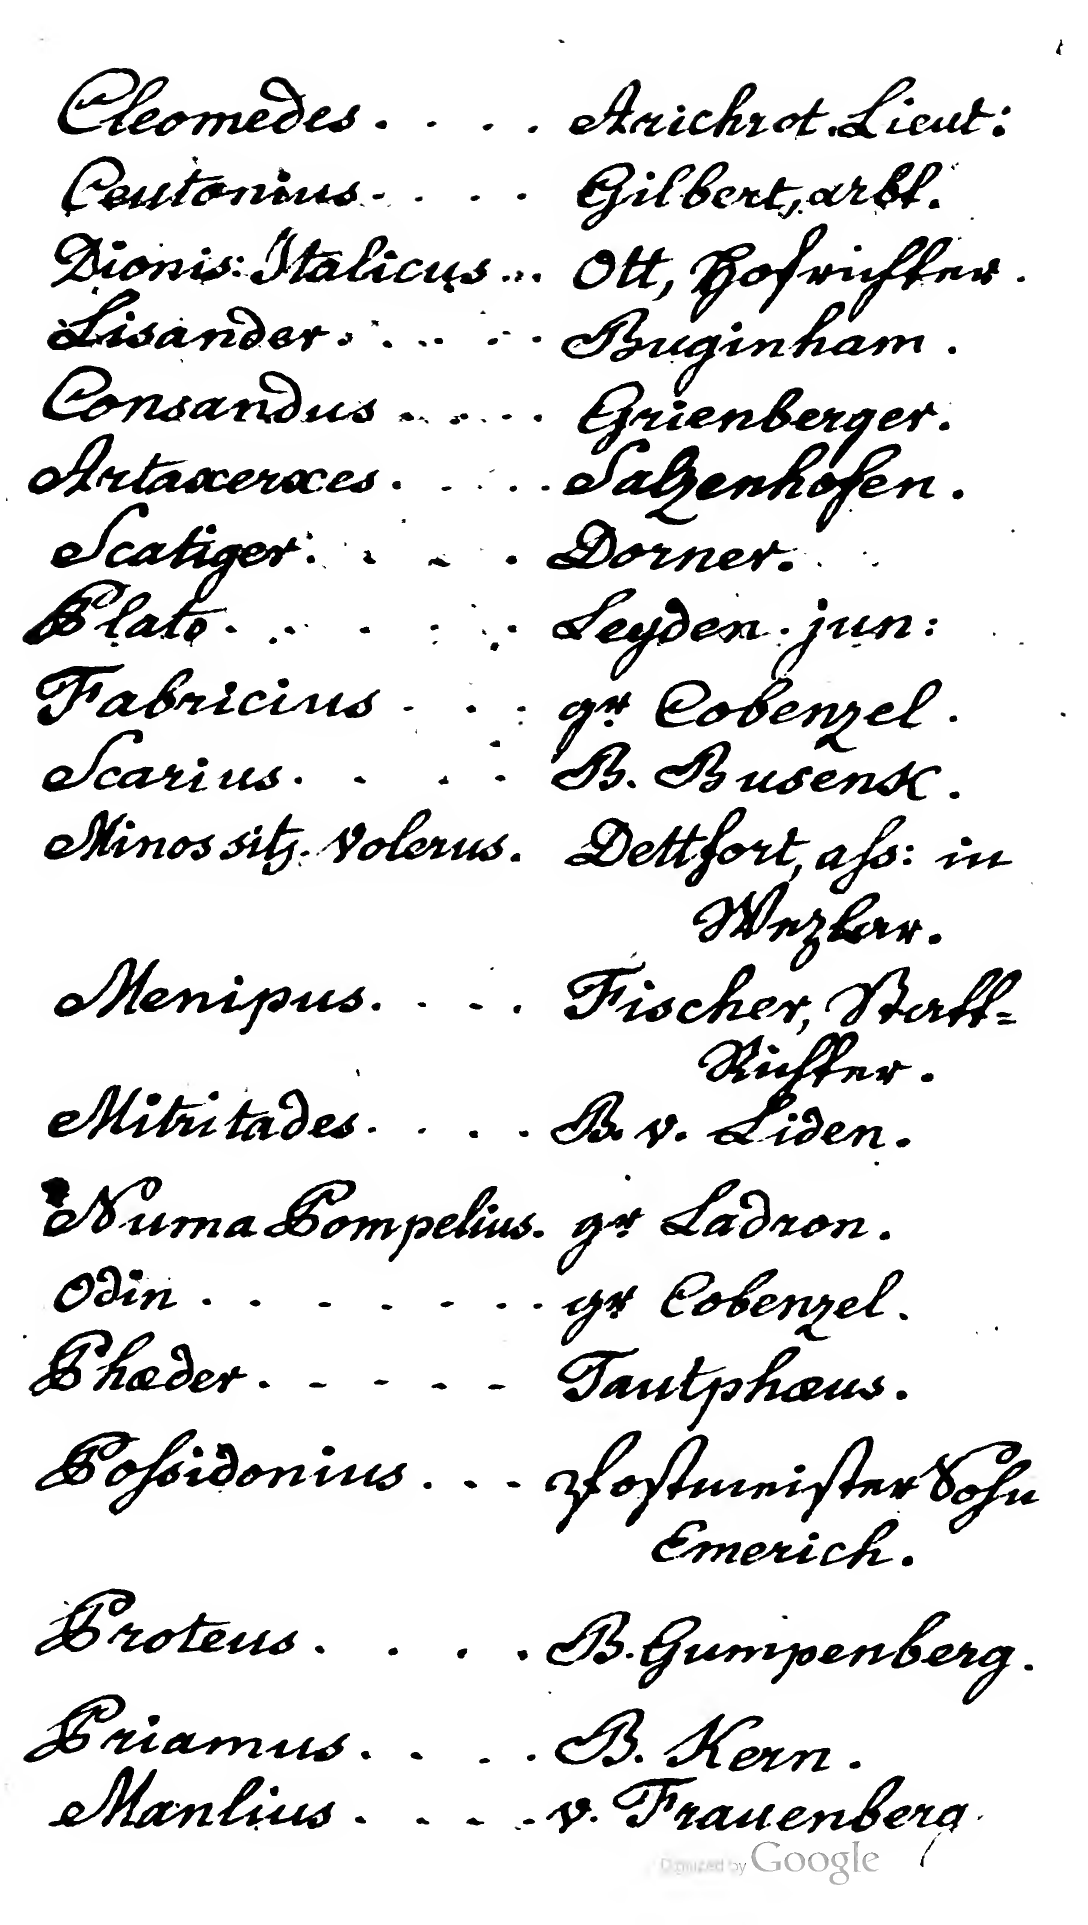 Cleomedes . . . . Arichrot. Lieut:
Ceutonius . . . . Gilbert, arbt.
Dionis: Italicus ... Ott, Hofrichter .
Lisander . . . . . . Buginham .
Consandus . . . . . Grienberger.
Artaxerxes . . . . . Salzenhofen .
Scatiger . . . . Dorner.
Plato . . . . . . Leyden . jun:
Fabricius . . . gr Cobenzel .
Scarius . . . . B. Busensk .
Minos sitz. Volerus. Dettfort, aſs: in
Wezlar.
Menipus. . . . Fischer, Statt=
Richter.
Mitritades . . . . B. v. Liden.
Numa Pompelius. gr Ladron .
Odin . . . . . . . gr Cobenzel .
Phæder . - - - - Tautphæus.
Poſsidonius . . - Postmeister Sohn
Emerich.
Proteus . . . . B. Gumpenberg .
Priamus . . . . B. Kern .
Manlius . . . . v. Frauenberg
Digitized by Google